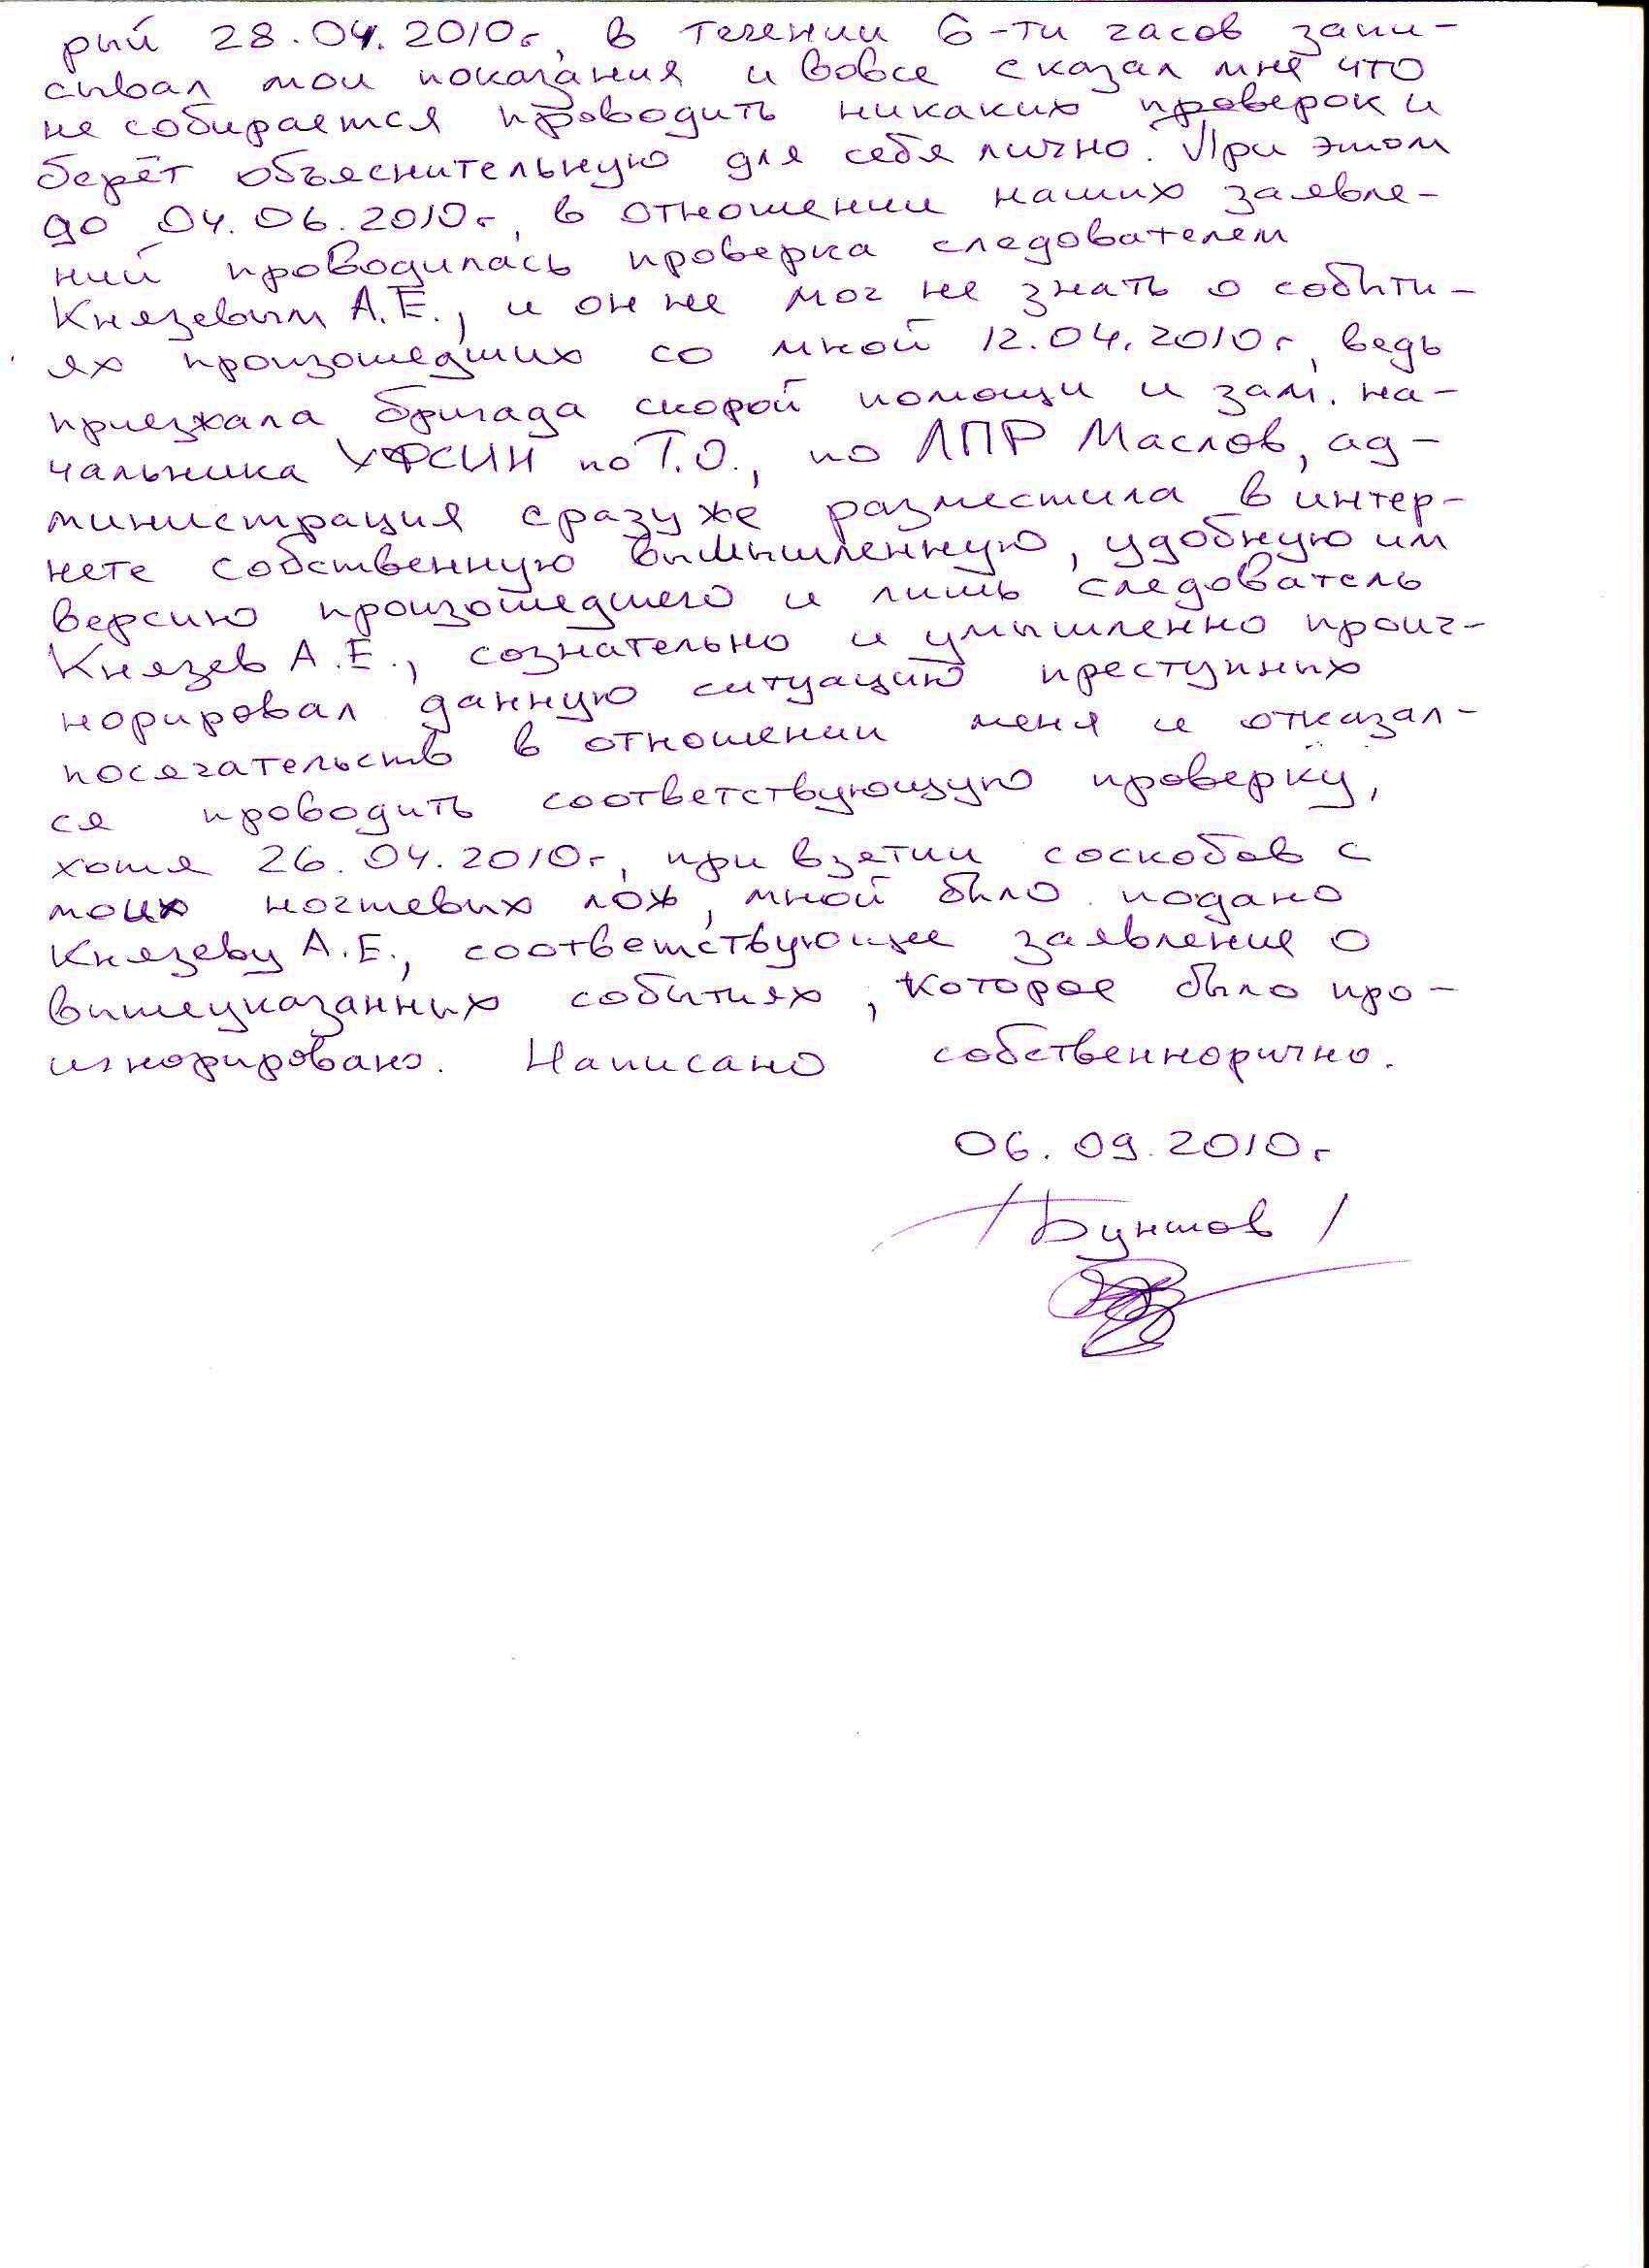 рый 28.04.2010г, в течении 6-ти часов запи-
сывал мои показания и вовсе сказал мне что
не собирается проводить никаких проверок и
берёт объяснительную для себя лично. При этом
до 04.06.2010г, в отношении наших заявле-
ний проводилась проверка следователем
Князевым А.Е., и он не мог не знать о событи-
ях произошедших со мной 12.04.2010г, ведь
приезжала бригада скорой помощи и зам. на-
чальника УФСИН по Т.О., по ЛПР Маслов, ад-
министрация сразу же разместила в интер-
нете собственную вымышленную, удобную им
версию произошедшего и лишь следователь
Князев А.Е., сознательно и умышленно проиг-
норировал данную ситуацию преступных
посягательств в отношении меня и отказал-
ся проводить соответствующую проверку,
хотя 26.04.2010г, при взятии соскобов с
моих ногтевых лож, мной было подано
Князеву А.Е., соответствующее заявление о
вышеуказанных событиях, которое было про-
игнорировано. Написано собственнорично.
06.09.2010г
/Бунтов/